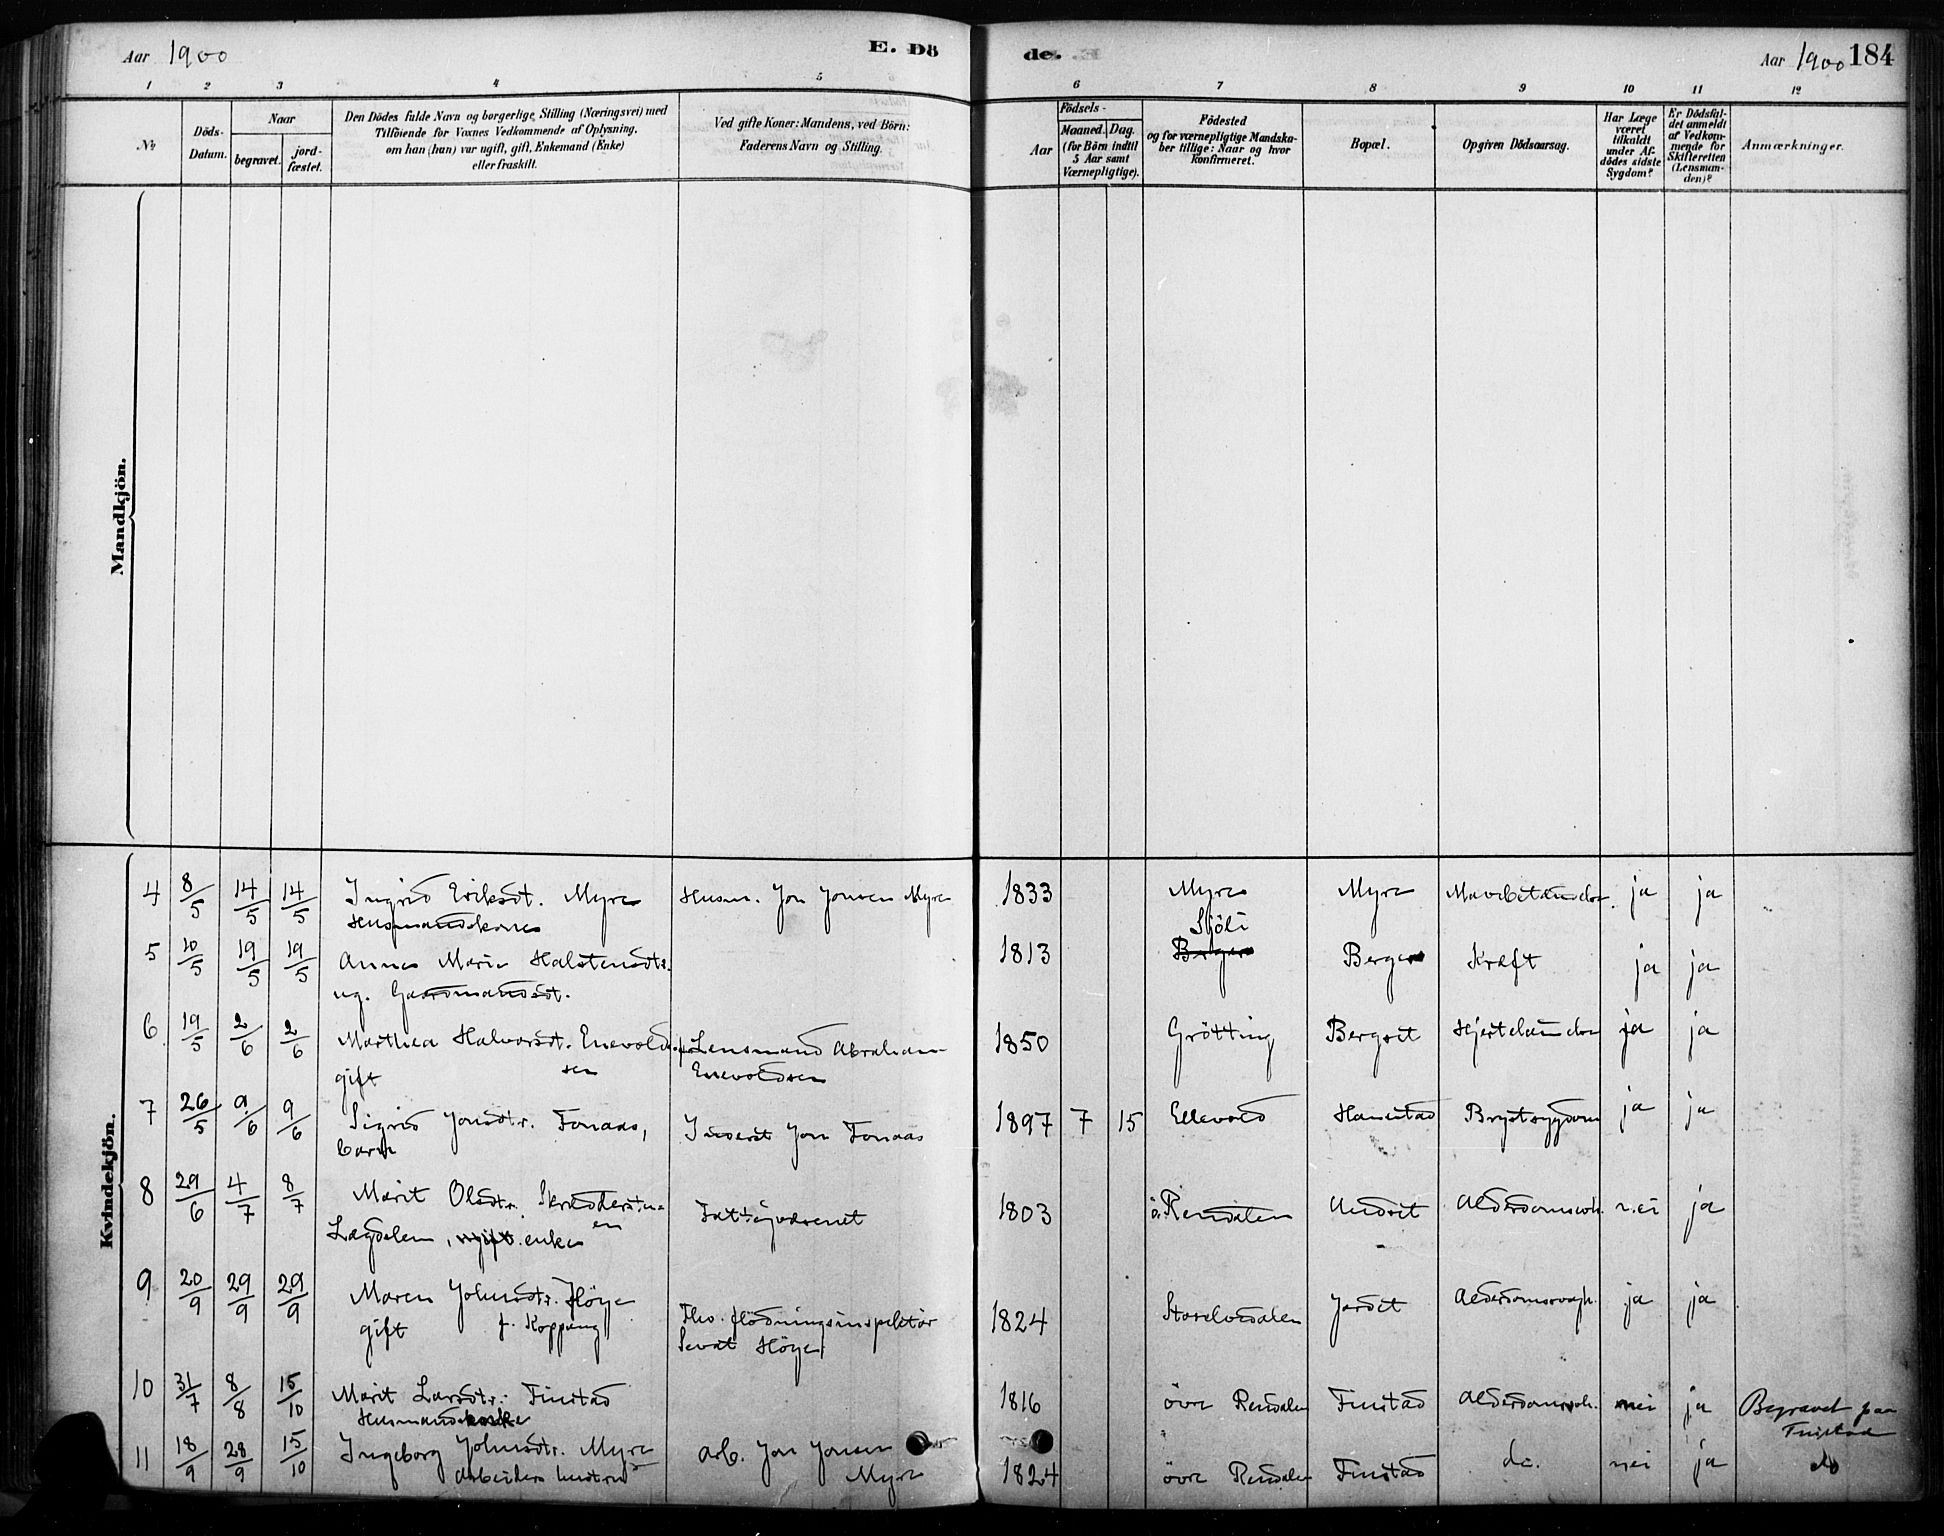 Aar 1900 E. Dö de. Aar 1900 184
1 2 3 4 5 6 7 8 9 10 11 12
No
Döds-Datum.
Naar
begravet.
jord-fæstet.
Den Dödes fulde Navn og borgerlige Stilling (Næringsvei) med
Tilföiende for Voxnes Vedkommende af Oplysning,
om han (hun) var ugift, gift, Enkemand (Enke)
eller fraskilt.
Ved gifte Koner: Mandens, ved Börn:
Faderens Navn og Stilling.
Födsels-
Aar
Maaned. Dag.
(for Börn indtil
5 Aar samt
Værnepligtige).
Födested
og for værnepligtige Mandska-
ber tillige: Naar og hvor
konfirmeret.
Bopæl.
Opgiven Dödsaarsag.
Har Læge
været
tilkaldt
under Af-
dödes sidste
Sygdom?
Er Dödsfal-
det anmeldt
af Vedkom-
mende for
Skifteretten
(Lensman-
den)?
Anmærkninger.
Mandkjön.
Kvindekjön.
4 8/5 14/5 14/5 Ingrid Eriksdt. Myre Husm. Jon Jonsen Myre 1833 Myre Myre ja ja
Husmandskone
5 10/5 19/5 19/5 Anne Marie Halstensdtr. 1813 Sjöli Berger Kræft ja ja
ug. Gaardmandsdt.
6 19/5 2/6 2/6 Marthea Halvorsdt. Enevold- Lensmand Abraham 1850 Grötting Bergset ja ja
gift sen Enevoldsen
7 26/5 9/6 9/6 Sigrid Jonsdtr. Fonaas, Inderst Jon Fonaas 1897 7 15 Ellevold Hanestad Brystsygdom ja ja
barn
8 29/6 4/7 8/7 Marit Olsdtr. Skrædderstu- Fattigvæsenet 1803 ö. Rendalen Undset Alderdomssvh. nei ja
en
Lægdelem, ugift. enke
9 20/9 29/9 29/9 Maren Johnsdtr. Höye Fhv. flödningsinspektör 1824 Storelvedalen Jordet Alderdomssvagh. ja ja
gift f. Koppang Sevat Höye
10 31/7 8/8 15/10 Marit Larsdtr. Finstad 1816 övre Rendalen Finstad Alderdomssvh. nei ja Begravet paa
Husmandsenke Finstad
11 18/9 28/9 15/10 Ingeborg Johnsdtr. Myre Arb. Jon Jonsen 1824 övre Rendalen Finstad do. nei ja do
Arbeiders hustru Myre